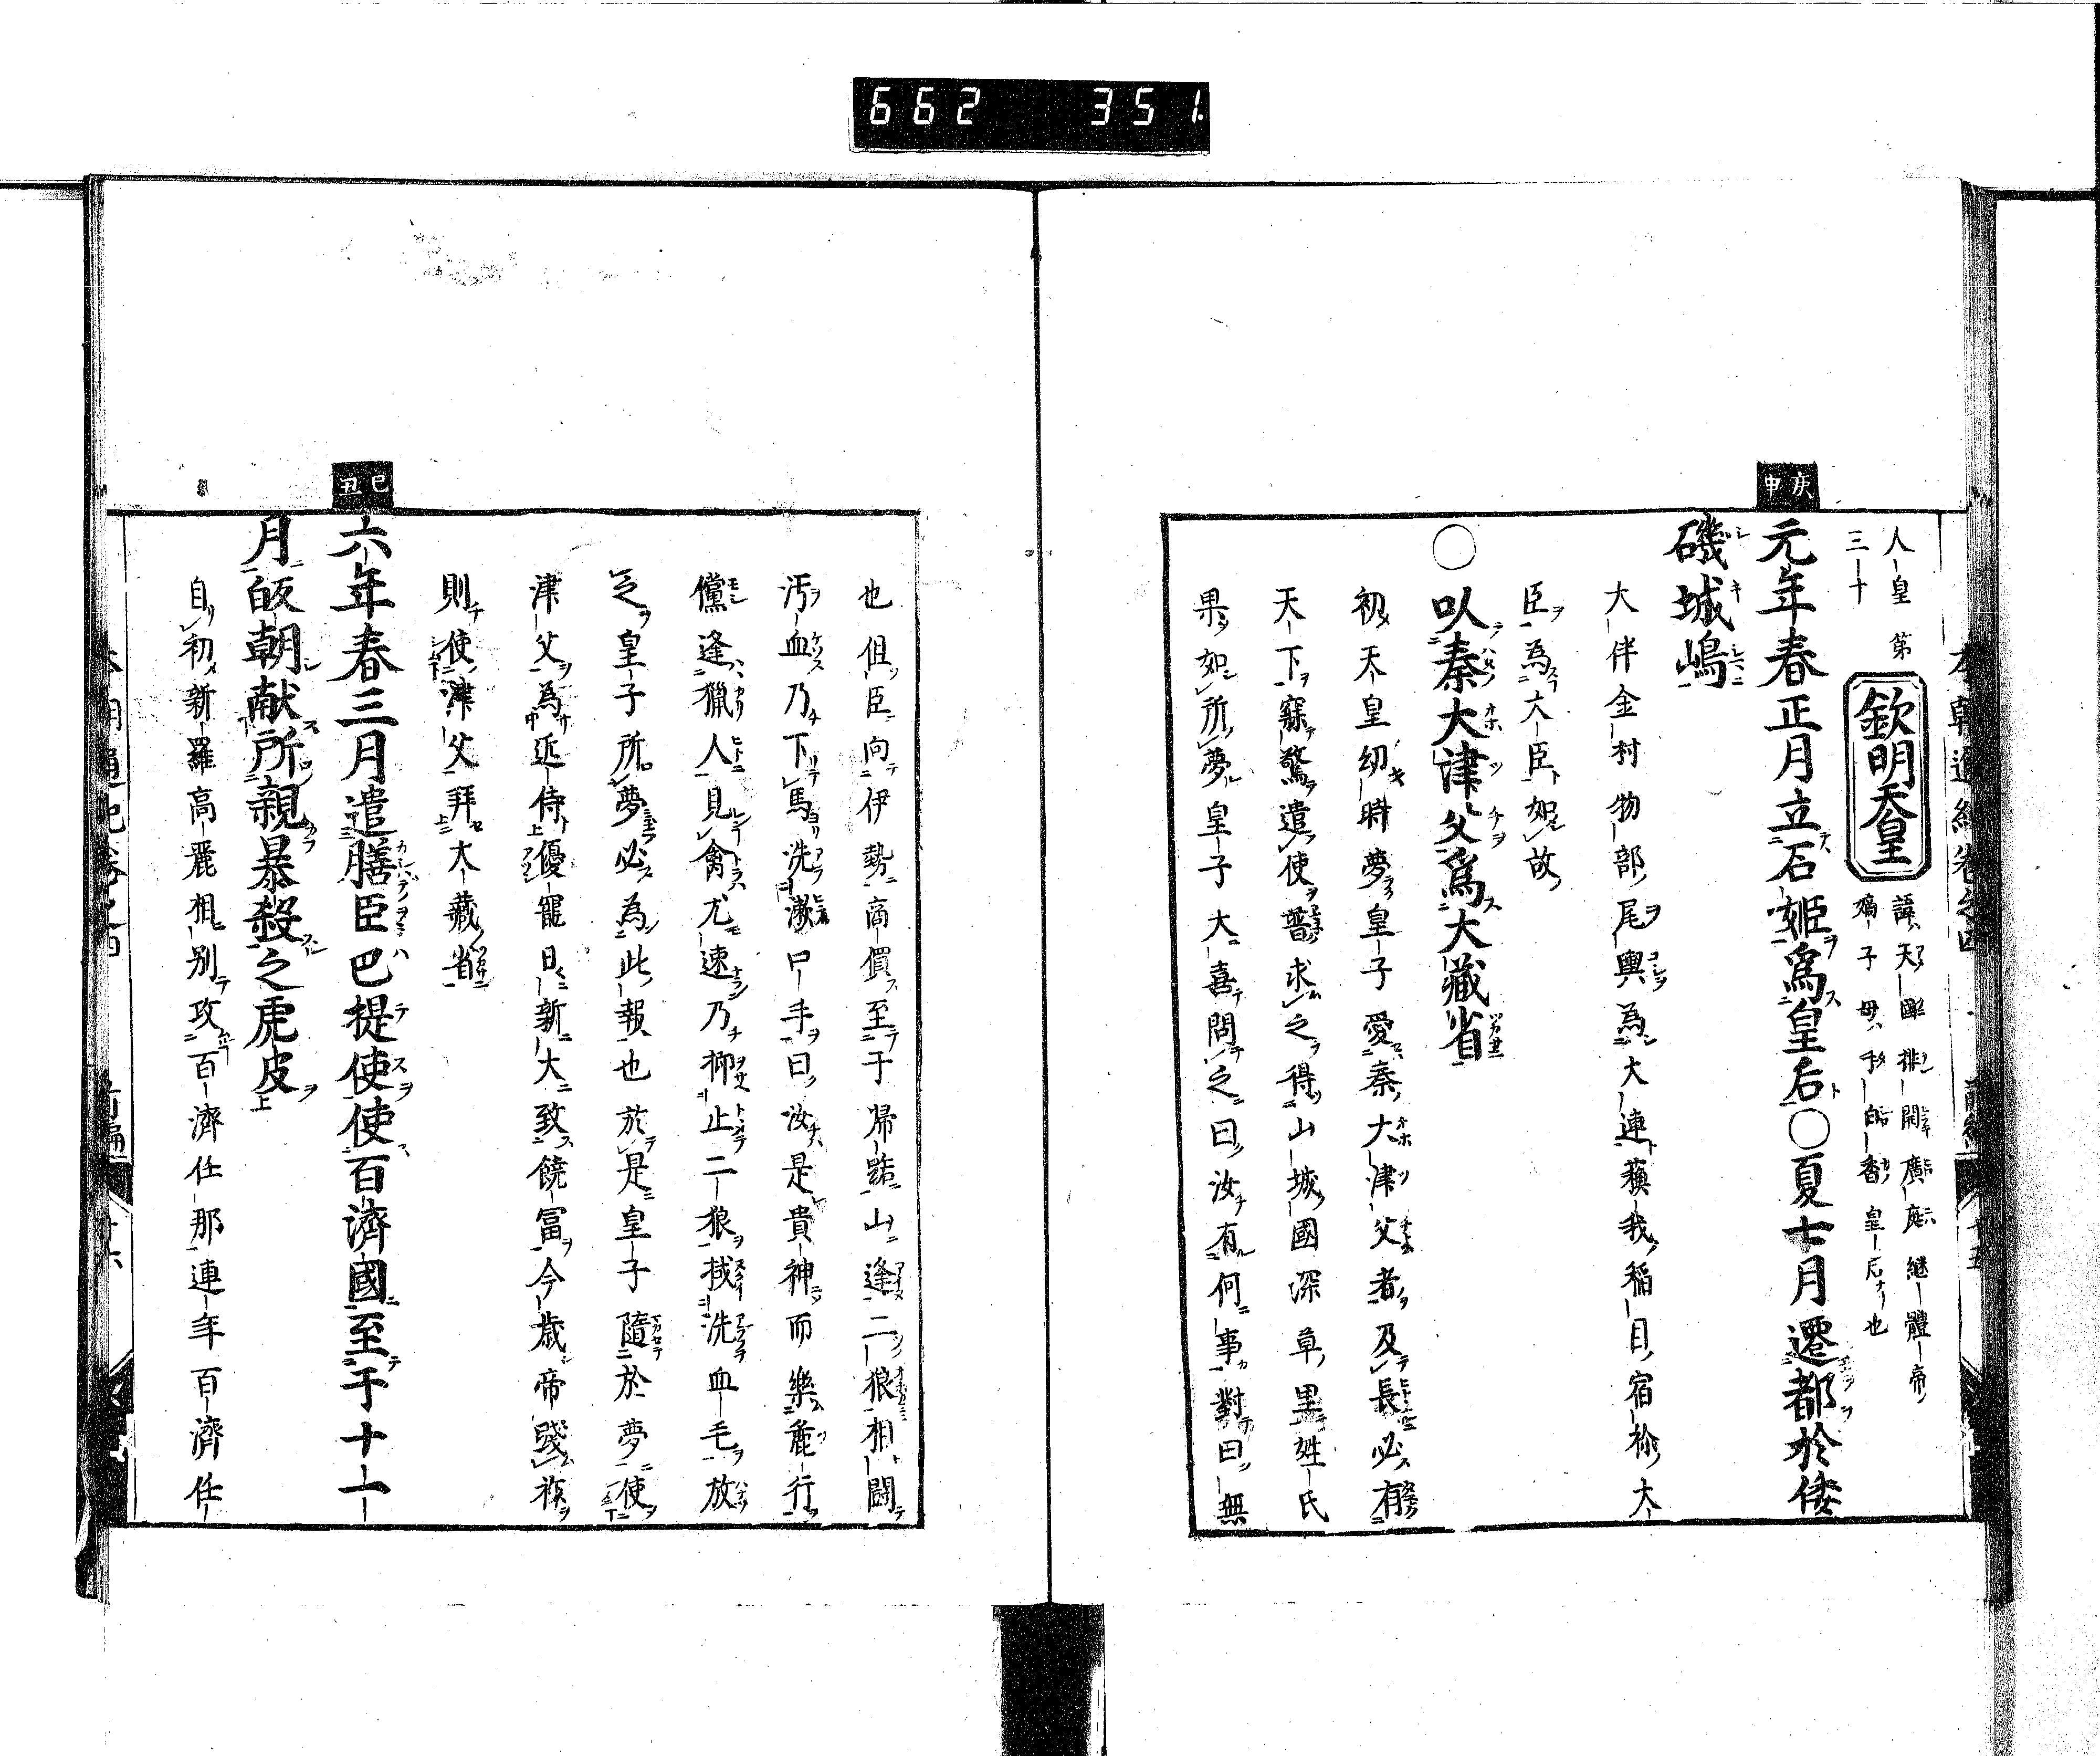 662 351
人皇 第三十
欽明天皇
諱天國排開廣庭継體帝
嫡子母手白香皇后也
庚申
元年春正月立石姫爲皇后〇夏七月遷都於倭
磯城嶋
大伴金村物部尾輿為大連蘓我稲目宿祢大
臣為大臣如故
〇以秦大津父爲大藏省
初天皇幼時夢皇子愛秦大津父者及長必有
天下寐驚遣使普求之得山城國深草里姓氏
果如所夢皇子大喜問之曰汝有何事對曰無
也但臣向伊勢商價至于帰山逢二狼相闘
汚血乃下馬洗漱口手曰汝是貴神而樂麁行
儻逢獵人見禽尤速乃抑止二狼拭洗血毛放
之皇子所夢必為此報也於是皇子隨於夢使
津父為近侍優寵日新大致饒冨今歳帝踐祚
則使津父拜大藏省
巳丑
六年春三月遣膳臣巴提使使百濟國至于十一
月皈朝献所親暴殺之虎皮
自初新羅高麗相別攻百濟任那連年百濟任